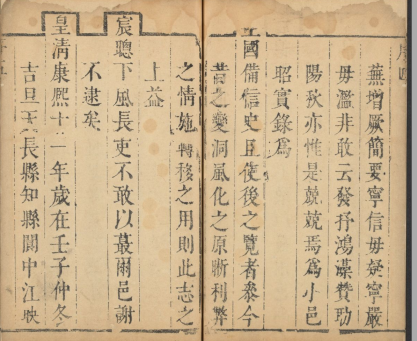 蕪增厥簡要寧信毋疑寧嚴
毋濫非敢云發抒鴻藻贊勷
陽秋亦惟是兢兢焉為小邑
昭實錄為
國備信史且使後之覽者黍今
昔之變洞風化之原晰利弊
之情施轉移之用則此志之
上益
宸聰下風長吏不敢以蕞爾邑謝
不逮矣
皇清康熙十一年歲在壬子仲冬
吉旦天長縣知縣閩中江映